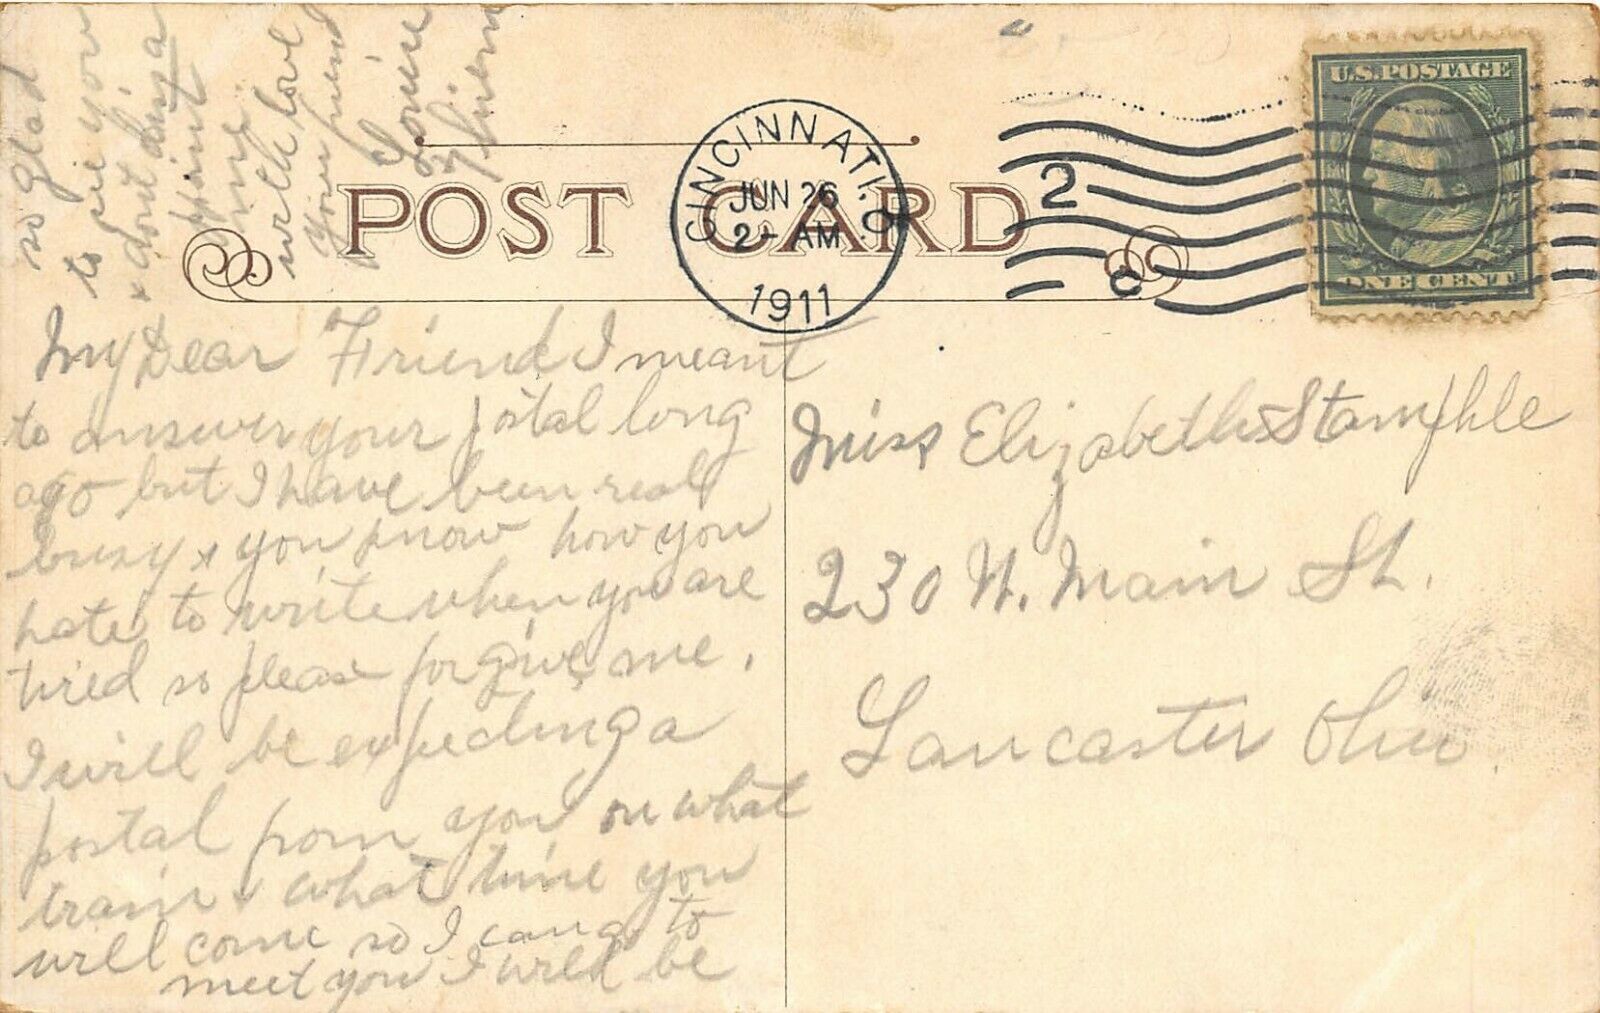 POST CARD
CINCINNATI, O.
JUN 26
2- AM
1911
2
U.S. POSTAGE
ONE CENT
My Dear Friend I meant
to answer your postal long
ago but I have been real
busy & you know how you
hate to write when you are
tired so please forgive me.
I will be expecting a
postal from you on what
train & what time you
will come so I can go to
meet you I will be
so glad
to see you
& dont disa
ppoint
me
with love
Your friend
Louise
Miss Elizabeth Stamphle
230 N. Main St.
Lancaster Ohio